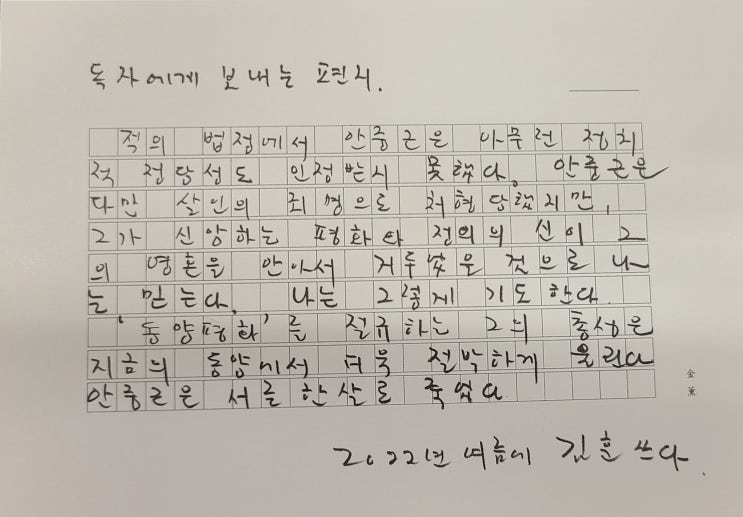 독자에게 보내는 편지.
적의 법정에서 안중근은 아무런 정치
적 정당성도 인정받지 못했다. 안중근은
다만 살인의 죄명으로 처형당했지만,
그가 신앙하는 평화와 정의의 신이 그
의 영혼을 안아서 거두었을 것으로 나
는 믿는다. 나는 그렇게 기도한다.
'동양평화'를 절규하는 그의 총성은
지금의 동양에서 더욱 절박하게 울린다
안중근은 서른한살로 죽었다
金薰
2022년 여름에 김훈 쓰다.